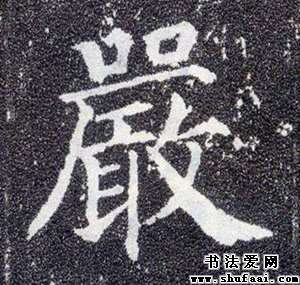 嚴
书法爱网
www.shufaai.com